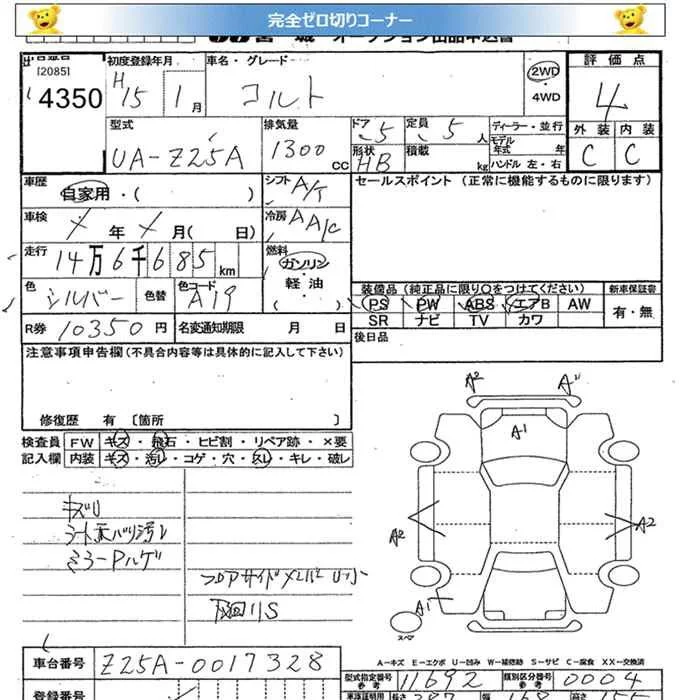 完全ゼロ切りコーナー
[2085]
4350
初度登録年月
H15 1月
車名・グレード
コルト
2WD
・4WD
評価点
4
外装 内装
C C
型式
UA-Z25A
排気量
1300 cc
ドア 5
定員 5 人
形状 HB
積載 kg
ディーラー・並行
モデル年式 年
ハンドル 左・右
車歴
自家用・( )
シフト A/T
セールスポイント (正常に機能するものに限ります)
車検
X 年 X 月( 日)
冷房 AA/C
走行
14万6千685km
燃料
ガソリン
・軽油・
( )
色
シルバー
色替
色コード
A19
装備品 (純正品に限り○をつけてください)
新車保証書
PS PW ABS エアB AW
SR ナビ TV カワ
有・無
R券 10350円
名変通知期限 月 日
後日品
注意事項申告欄 (不具合内容等は具体的に記入して下さい)
修復歴 有 〔箇所 〕
検査員 FW キズ・飛石・ヒビ割・リペア跡・×要
記入欄 内装 キズ・汚レ・コゲ・穴・スレ・キレ・破レ
キズU
A2 A1 A1
A2 A2
A1
スペア
A-キズ E-エクボ U-凹み W-補修跡 S-サビ C-腐食 XX-交換済
車台番号 Z25A-0017328
型式指定番号 11692
類別区分番号 0004